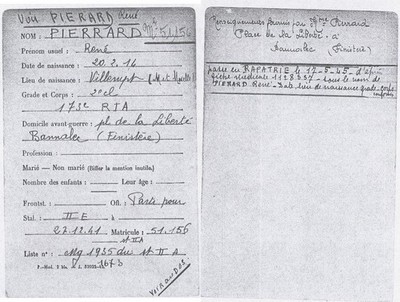 Voir PIERARD René
NOM : PIERRARD Mle 51.156
Prénom usuel : René
Date de naissance : 20.2.14
Lieu de naissance : Villerupt (M. et Moselle)
Grade et Corps : 2e cl
173e RIA
Domicile avant-guerre : pl. de la Liberté
Bannalec (Finistère)
Profession :
Marié — Non marié (Biffer la mention inutile.)
Nombre des enfants : Leur âge :
Frontst. Ofl. : Parti pour
Stal. : II E à
27.12.41 Matricule : 51.156
st II A
Liste n° : Mq 1935 du st II A
Renseignements fournis par Mme Pierrard
Place de la Liberté à
Bannalec (Finistère)
passé en RAPATRIE le 17-5-45 d'après
fiche médicale 1128337 sous le nom de
PIERARD René - Date, lieu de naissance, grade, corps